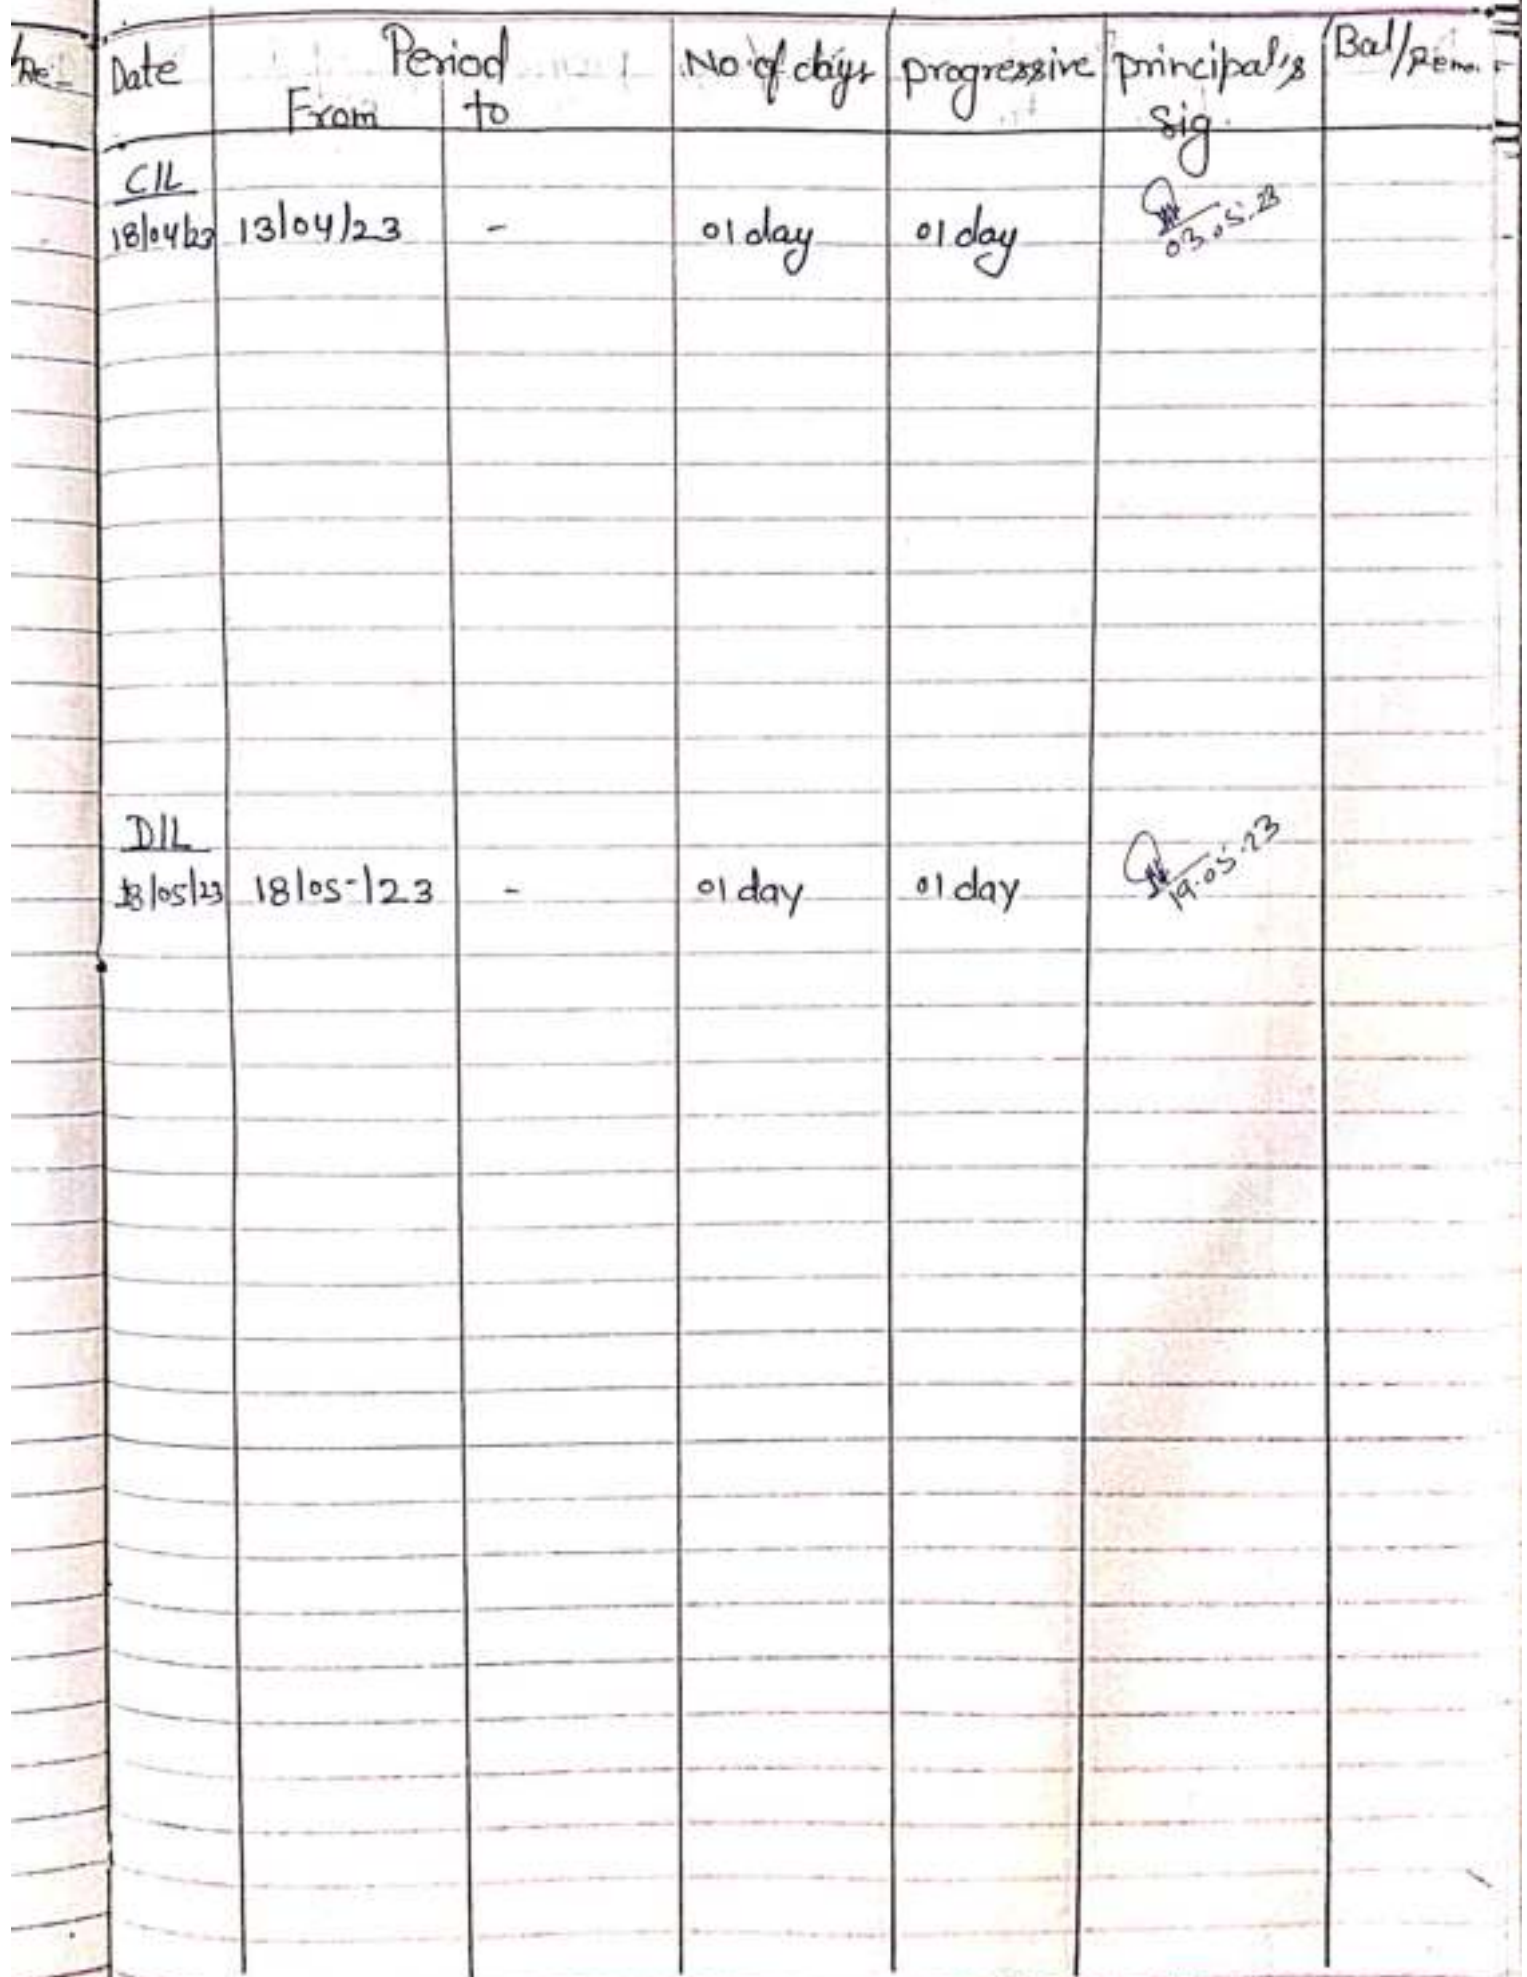 Date Period No. of days progressive principal's Bal/Rem.
From to Sig.
C/L
18/04/23 13/04/23 - 01 day 01 day 03.05.23
D/L
18/05/23 18/05/23 - 01 day 01 day 19.05.23